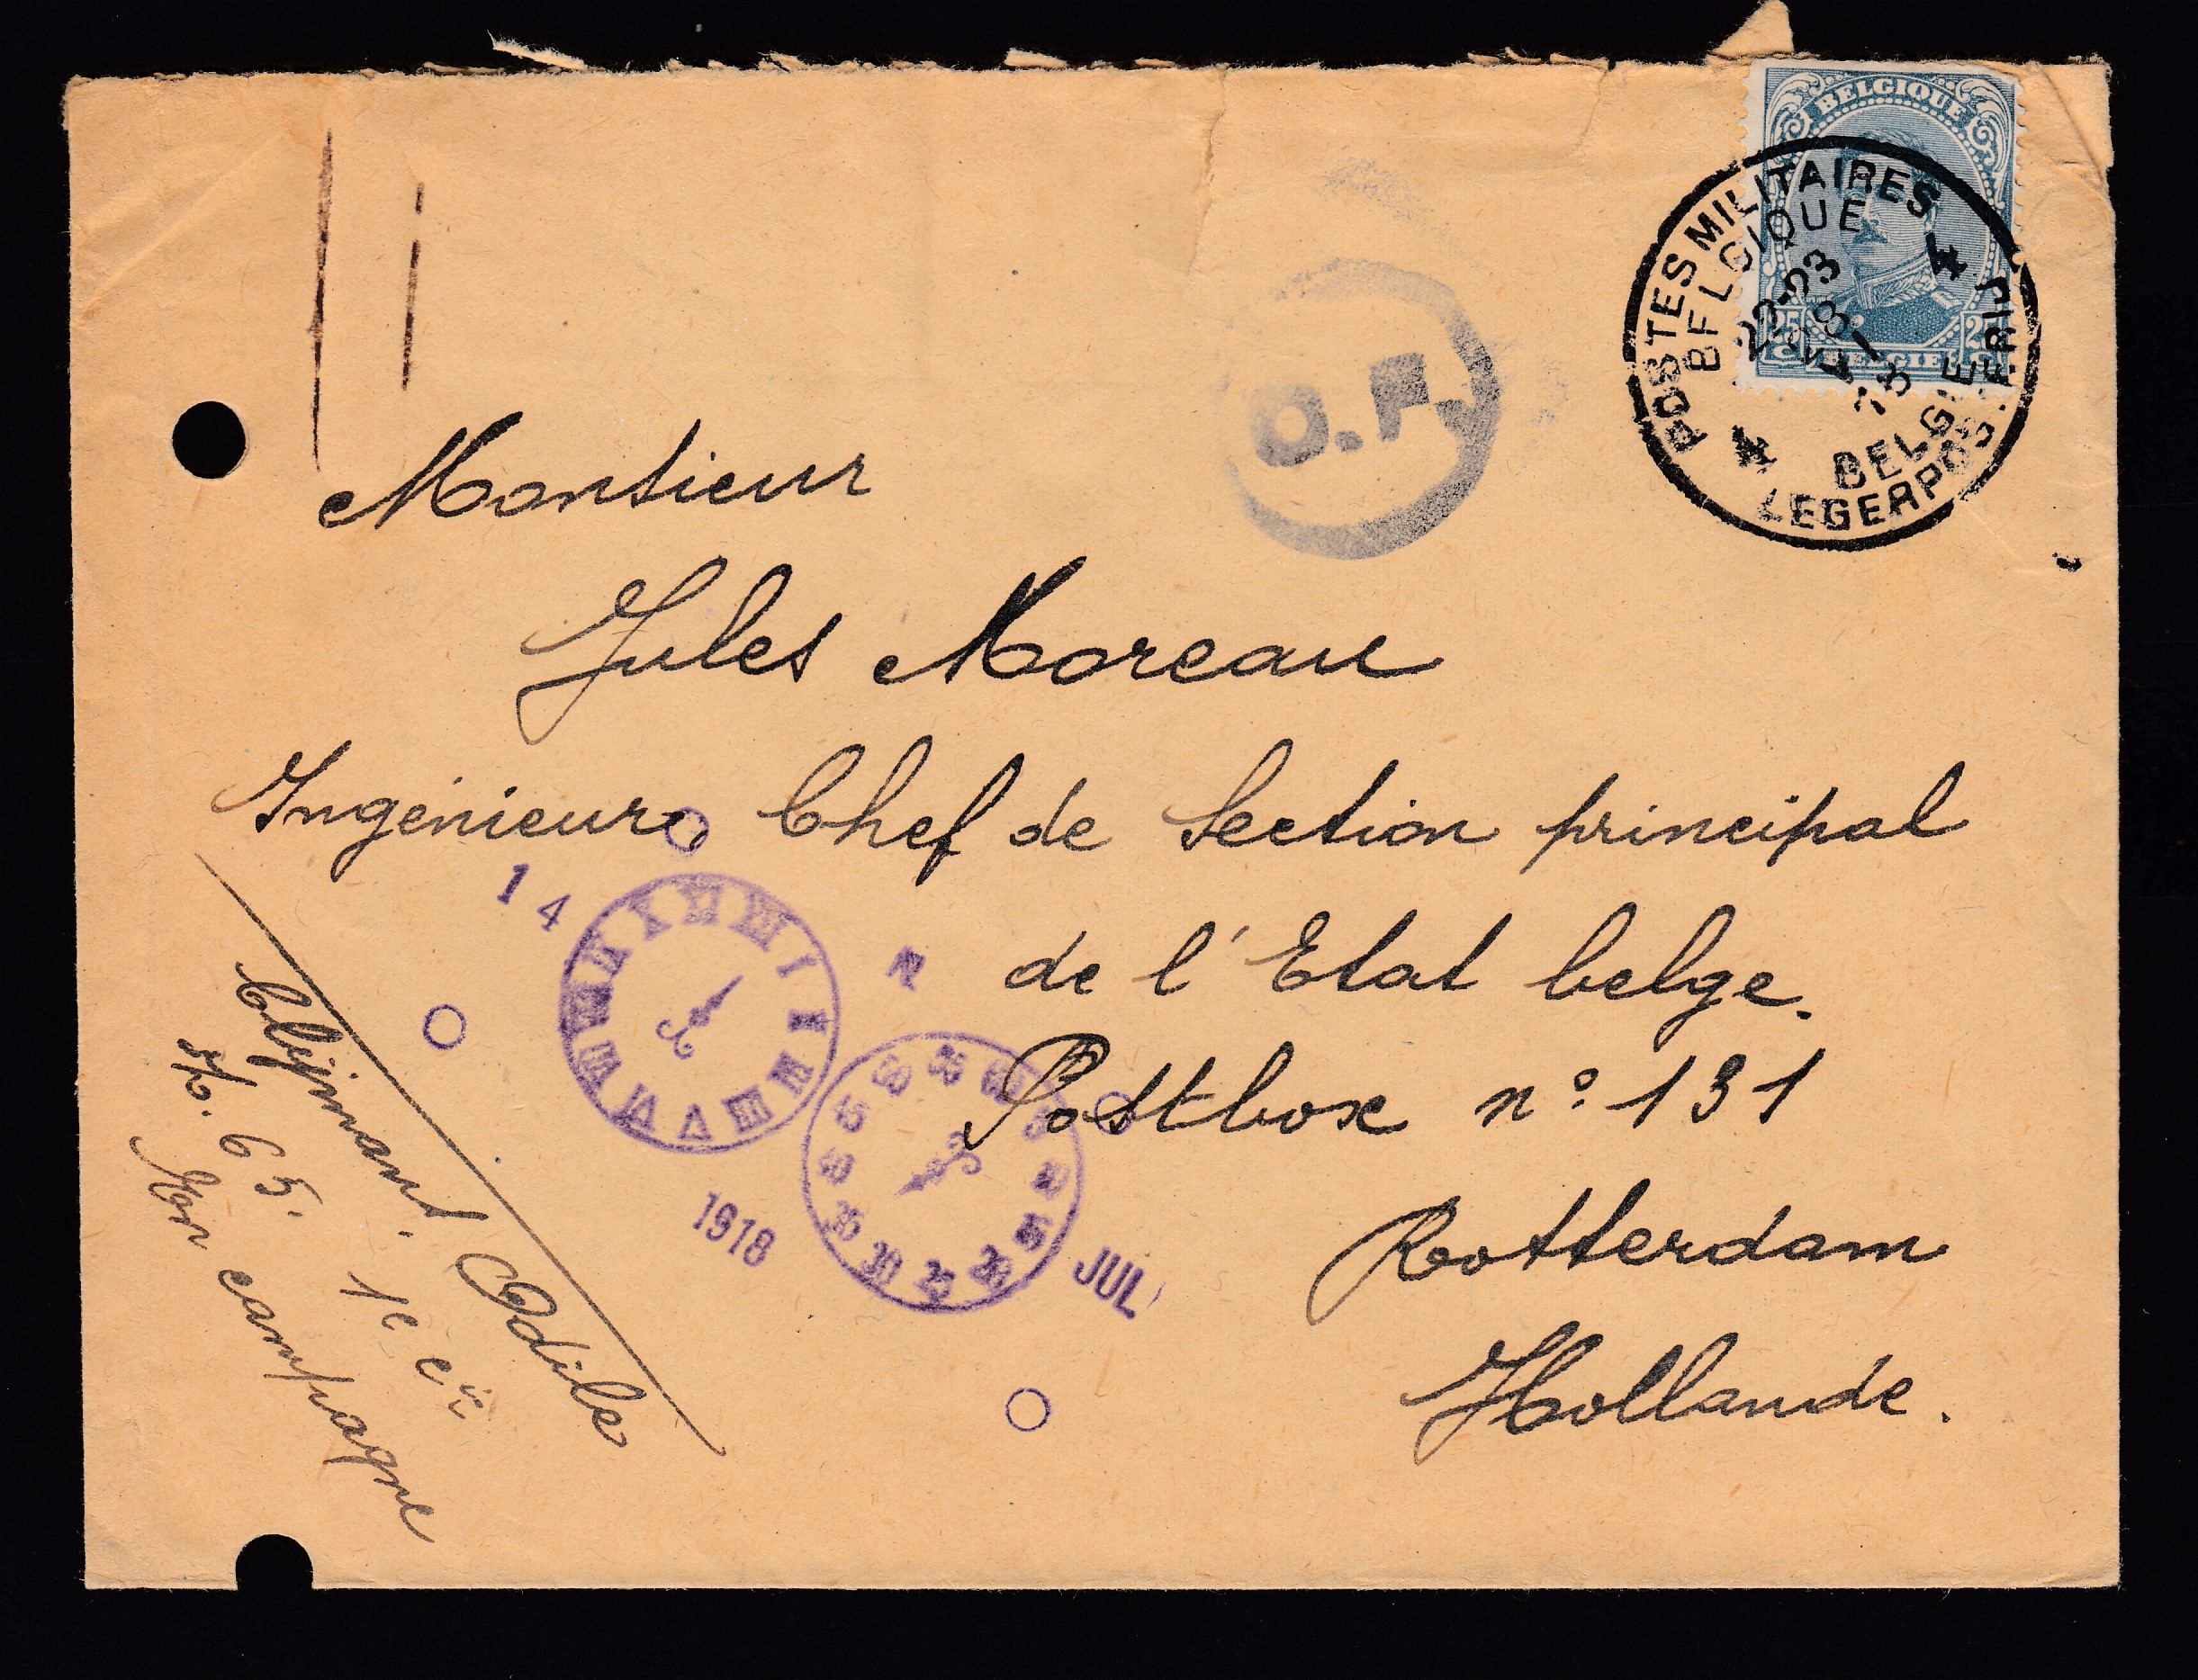 BELGIQUE
25 25
C BELGIE
POSTES MILITAIRES
BELGIQUE
4 22-23 4
28
VI
18
BELGIE
LEGERPOST. FRIJ
O.F.
Monsieur
Jules Moreau
Ingénieur, Chef de Section principal
de l'Etat belge.
Postbox n° 131
Rotterdam
Hollande.
14
1918
JUL
Odile
Z. 65. 1e Cie
en campagne